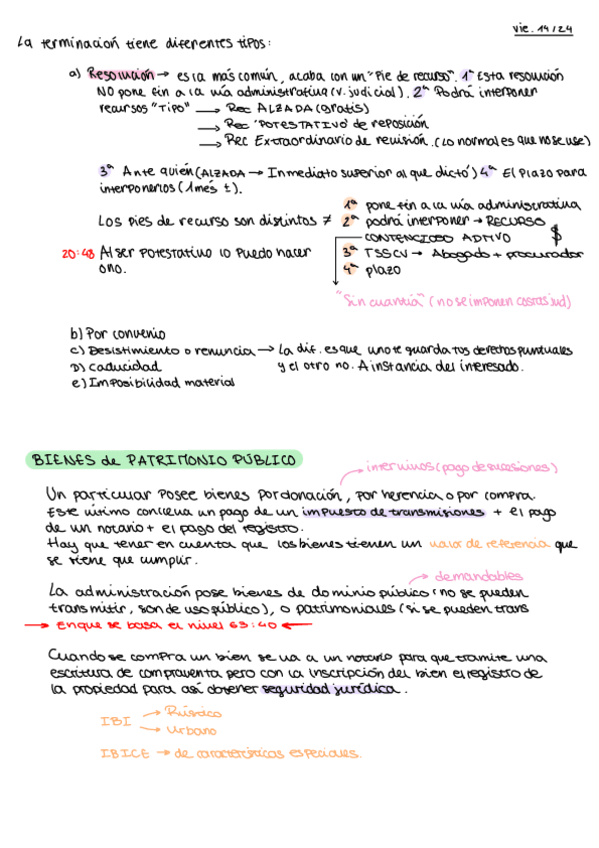 vie. 14/24
La terminación tiene diferentes tipos:
a) Resolución → es la más común, acaba con un "Pie de recurso". 1º Esta resolución
NO pone fin a la vía administrativa (v. judicial). 2º Podrá interponer
recursos "Tipo" → Rec ALZADA (gratis)
→ Rec 'POTESTATIVO' de reposición
→ Rec Extraordinario de revisión. (Lo normal es que no se use)
3º Ante quién (ALZADA → Inmediato superior al que dictó) 4º El Plazo para
interponerlos (1 mes t).
Los pies de recurso son distintos ≠
1º pone fin a la vía administrativa
2º podrá interponer → RECURSO
CONTENCIOSO ADTIVO $
3º TSJCV → Abogado + procurador
4º plazo
20:48 Al ser Potestativo lo puedo hacer
o no.
"Sin cuantía" (no se imponen costas jud)
b) Por convenio
c) Desistimiento o renuncia → La dif. es que uno te guarda tus derechos puntuales
y el otro no. A instancia del interesado.
D) Caducidad
e) Imposibilidad material
BIENES de PATRIMONIO PÚBLICO
intervivos (pago de sucesiones)
Un particular posee bienes por donación, por herencia o por compra.
Este último conlleva un pago de un impuesto de transmisiones + el pago
de un notario + el pago del registro.
Hay que tener en cuenta que los bienes tienen un valor de referencia que
se tiene que cumplir.
demandables
La administración pose bienes de dominio público (no se pueden
transmitir, son de uso público), o patrimoniales (si se pueden trans
→ en que se basa el nivel 63:40 ←
Cuando se compra un bien se va a un notario para que tramite una
escritura de compraventa pero con la inscripción del bien el registro de
la propiedad para así obtener seguridad jurídica.
IBI → Rústico
→ Urbano
IBICE → de características especiales.